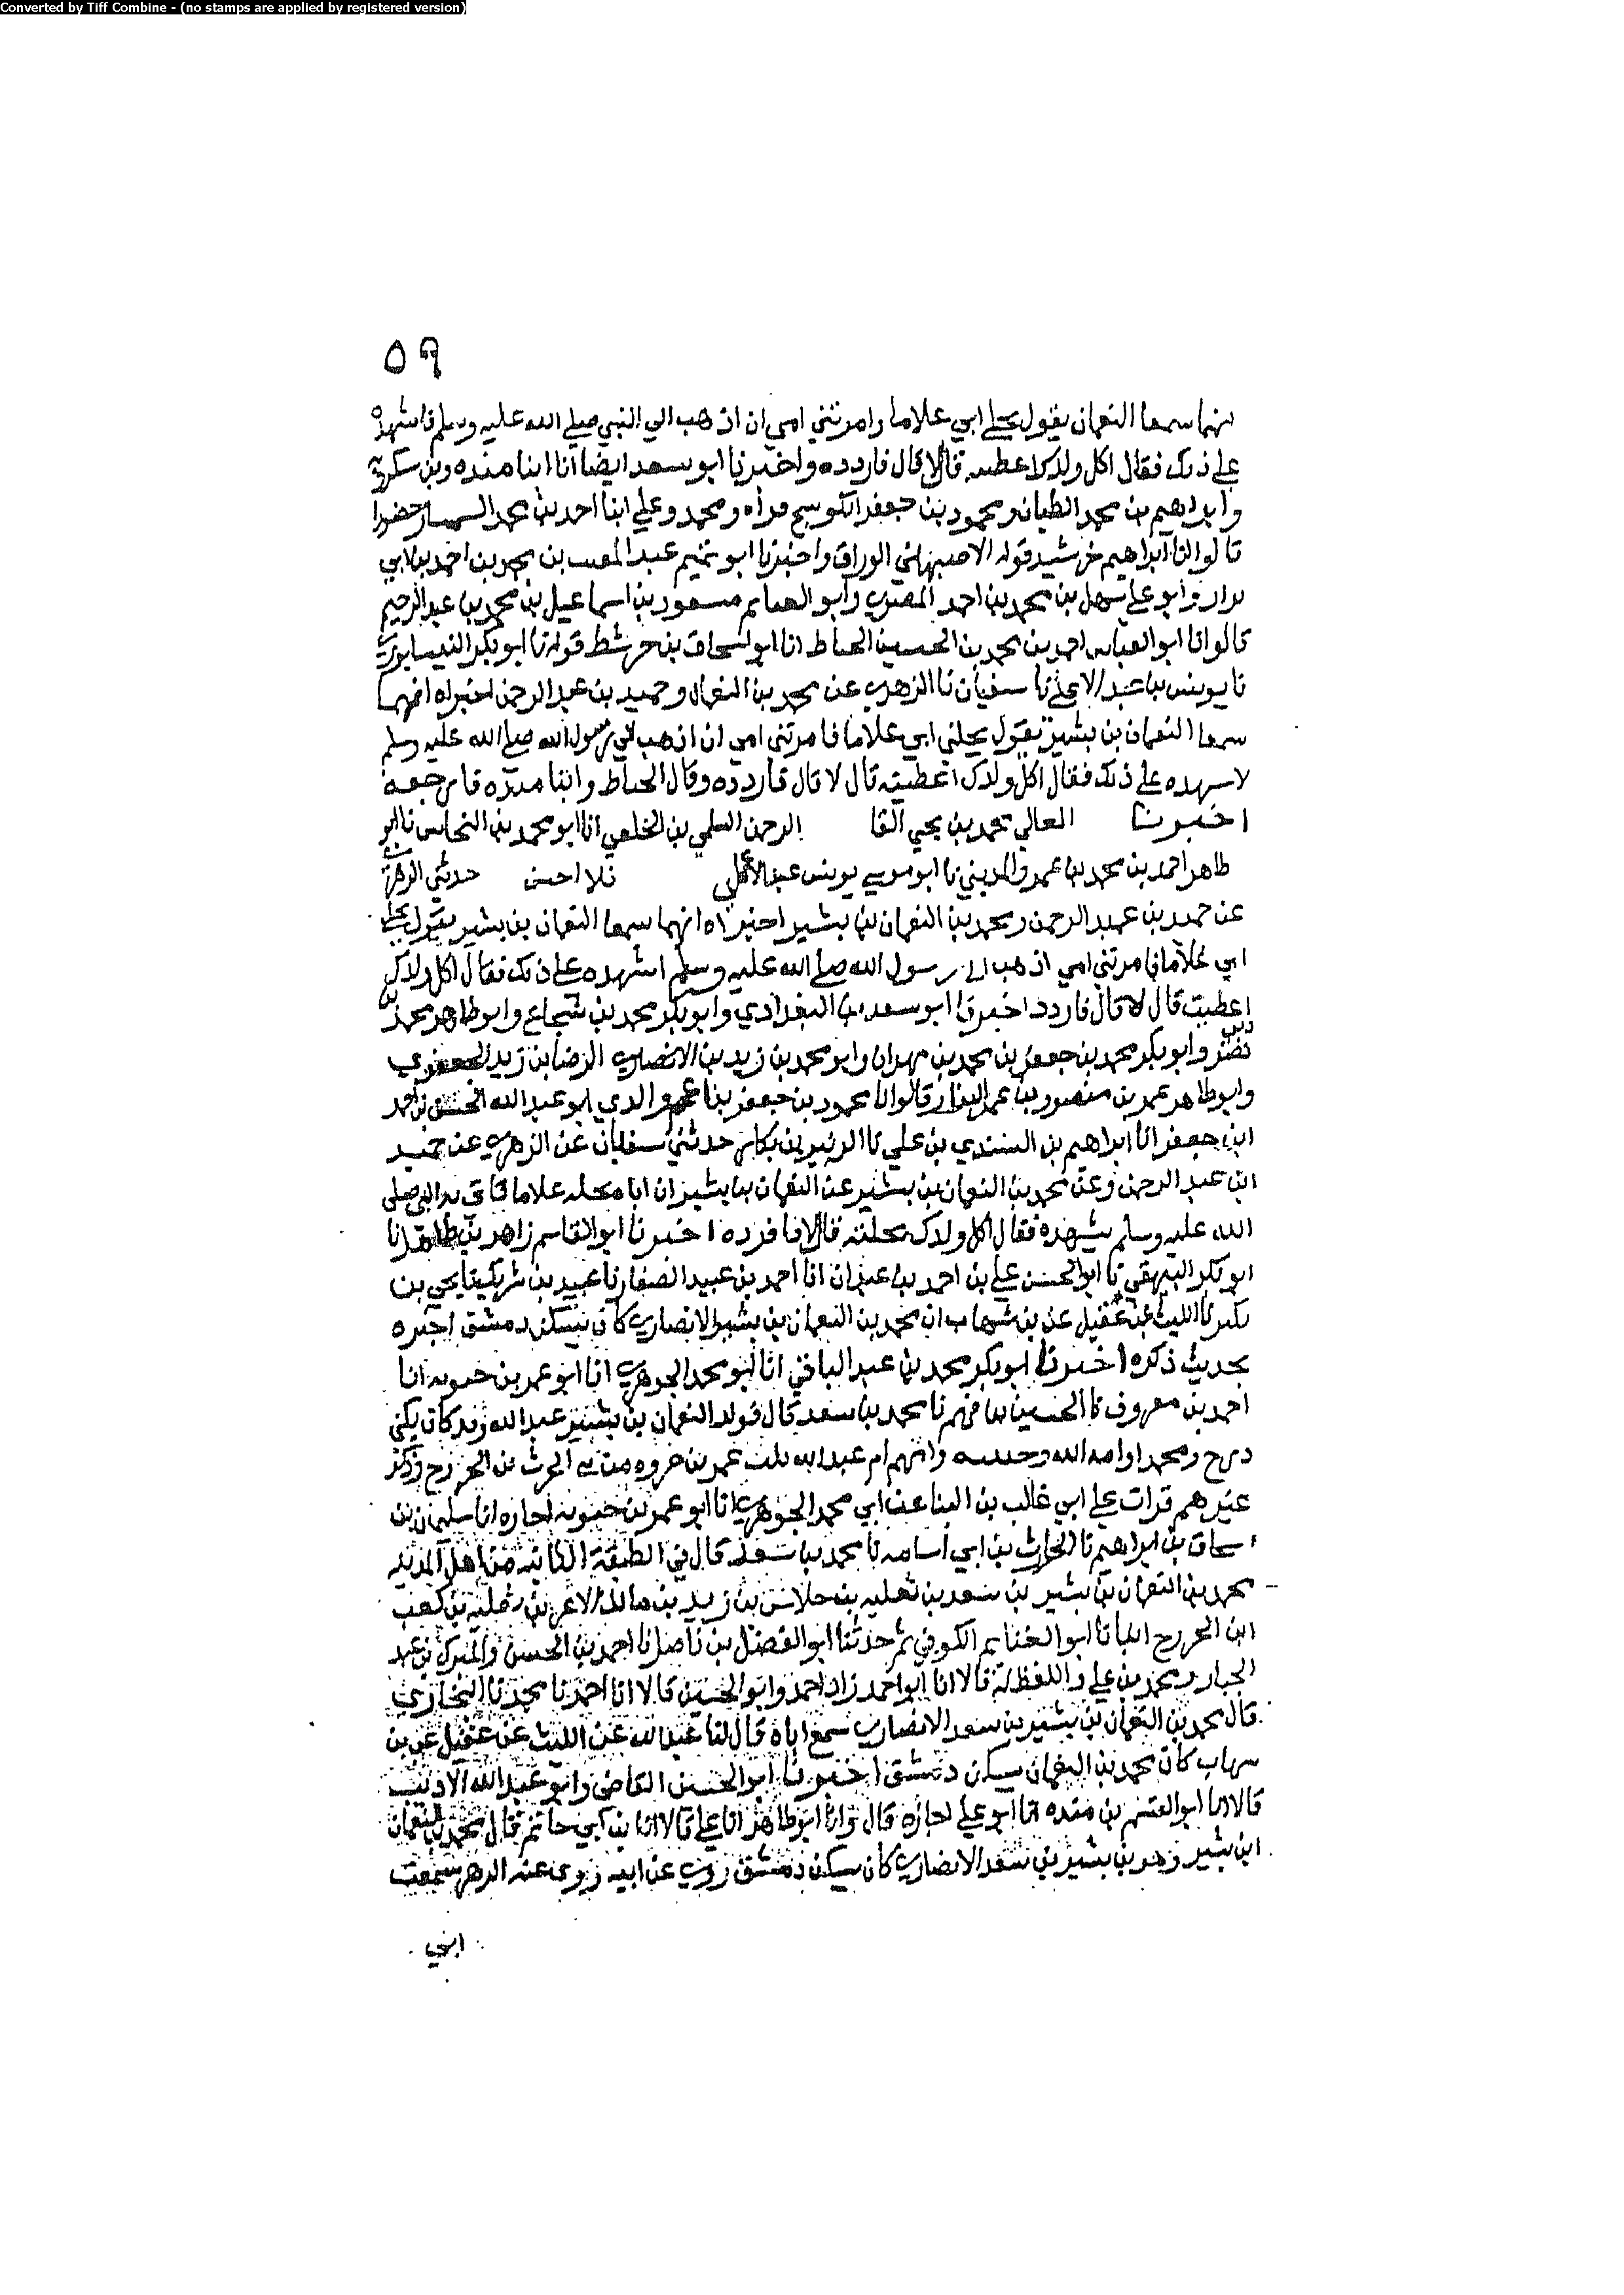 Converted by Tiff Combine - (no stamps are applied by registered version)
٥٩
انهما سمعا النعمان يقول نحلني ابي غلاما وامرتني امي ان اذهب الي النبي صلى الله عليه وسلم فاشهده
علي ذلك فقال اكل ولدك اعطيته قال لا قال فاردده واخبرنا ابو سعد ايضا انا ابنا منده وبن سكرويه
وابراهيم بن محمد الطيان ومحمود بن جعفر الكوسج قراه ومحمد وعلي ابنا احمد بن محمد السمسار حضورا
قالوا انا ابراهيم خرشيد قوله الاصبهاني الوراق واخبرنا ابو تميم عبد المغيث بن محمد بن احمد بن ابي
وابو علي سهل بن محمد بن احمد المصري وابو الغنايم مسعود بن اسماعيل بن محمد بن عبد الرحيم
قالوا انا ابو العباس احمد بن محمد بن الحسين الحناط انا ابو اسحاق بن خرشد قوله نا ابو بكر النيسابوري
نا يونس بن عبد الاعلى نا سفيان نا الزهري عن محمد بن النعمان وحميد بن عبد الرحمن اخبراه انهما
سمعا النعمان بن بشير يقول نحلني ابي غلاما فامرتني امي ان اذهب الي رسول الله صلى الله عليه وسلم
لاشهده علي ذلك فقال اكل ولدك اعطيته قال لا قال فاردده وقال الحناط وابنا منده فارجعه
اخبرنا المعالي محمد بن يحيي القا الرحمن السلمي بن الخلعي انا ابو محمد بن النحاس نا ابو
طاهر احمد بن محمد بن عمرو المديني نا ابو موسى يونس عبد الاعلي حدثني الزهري
عن حميد بن عبد الرحمن ومحمد بن النعمان بن بشير اخبراه انهما سمعا النعمان بن بشير يقول نحلني
ابي غلاما فامرتني امي اذهب الى رسول الله صلى الله عليه وسلم اشهده علي ذلك فقال اكل ولدك
اعطيت قال لا قال فاردد اخبرنا ابو سعد بن البغدادي وابو بكر محمد بن شجاع وابو طاهر محمد بن
وابو بكر محمد بن جعفر بن محمد بن مهران وابو محمد بن زيد بن الانصاري الرضا بن زيد الجعفري
وابو طاهر عمر بن منصور بن عمر البزار قالوا انا محمود بن جعفر بنا عم والدي ابو عبد الله الحسين بن احمد
ابن جعفر انا ابراهيم بن السندي بن علي نا الزبير بن بكار حدثني سفيان عن الزهري عن حميد
ابن عبد الرحمن وعن محمد بن النعمان بن بشير عن النعمان بن بشير ان اباه نحله غلاما فاتى به النبي صلى
الله عليه وسلم يشهده فقال اكل ولدك نحلته قال لا فاردده اخبرنا ابو القاسم زاهر بن طاهر انا
ابو بكر البيهقي نا ابو الحسن علي بن احمد بن عبدان انا احمد بن عبيد الصفار نا عبيد بن شريك نا يحيى بن
بكير نا الليث عن عقيل عن بن شهاب ان محمد بن النعمان بن بشير الانصاري كان يسكن دمشق اخبره
بحديث ذكره اخبرنا ابو بكر محمد بن عبد الباقي انا ابو محمد الجوهري انا ابو عمر بن حيويه انا
احمد بن معروف نا الحسين بن فهم نا محمد بن سعد قال فولد النعمان بن بشير عبد الله وبه كان يكنى
درج ومحمدا وامه الله وحبيبه وامهم ام عبد الله بنت عمر بن عروه من بني الحرث بن الخزرج وذكر
غيرهم قرات علي ابي غالب بن البنا عن ابي محمد الجوهري انا ابو عمر بن حيويه اجازه انا سليمان بن
اسحاق بن ابراهيم نا الحارث بن ابي اسامه نا محمد بن سعد قال في الطبقة الثانيه من اهل المدينه
محمد بن النعمان بن بشير بن سعد بن ثعلبه بن خلاس بن زيد بن مالك الاغر بن ثعلبه بن كعب
ابن الخزرج انبانا ابو الغنايم الكوفي ثم حدثنا ابو الفضل بن ناصر انا احمد بن الحسن والمبرك بن عبد
الجبار ومحمد بن علي واللفظ له قالا انا ابو احمد زاد احمد وابو الحسين قالا انا احمد نا محمد نا البخاري
قال محمد بن النعمان بن بشير بن سعد الانصاري سمع اباه قال لنا عبد الله عن الليث عن عقيل عن بن
شهاب كان محمد بن النعمان يسكن دمشق اخبرنا ابو الحسين القاضي وابو عبد الله الاديب
قالا انا ابو القسم بن منده انا ابو علي اجازه قال وانا ابو طاهر انا علي قالا انا بن ابي حاتم قال محمد بن النعمان
ابن بشير وهو بن بشير بن سعد الانصاري كان يسكن دمشق روى عن ابيه روى عنه الزهري سمعت
ابي